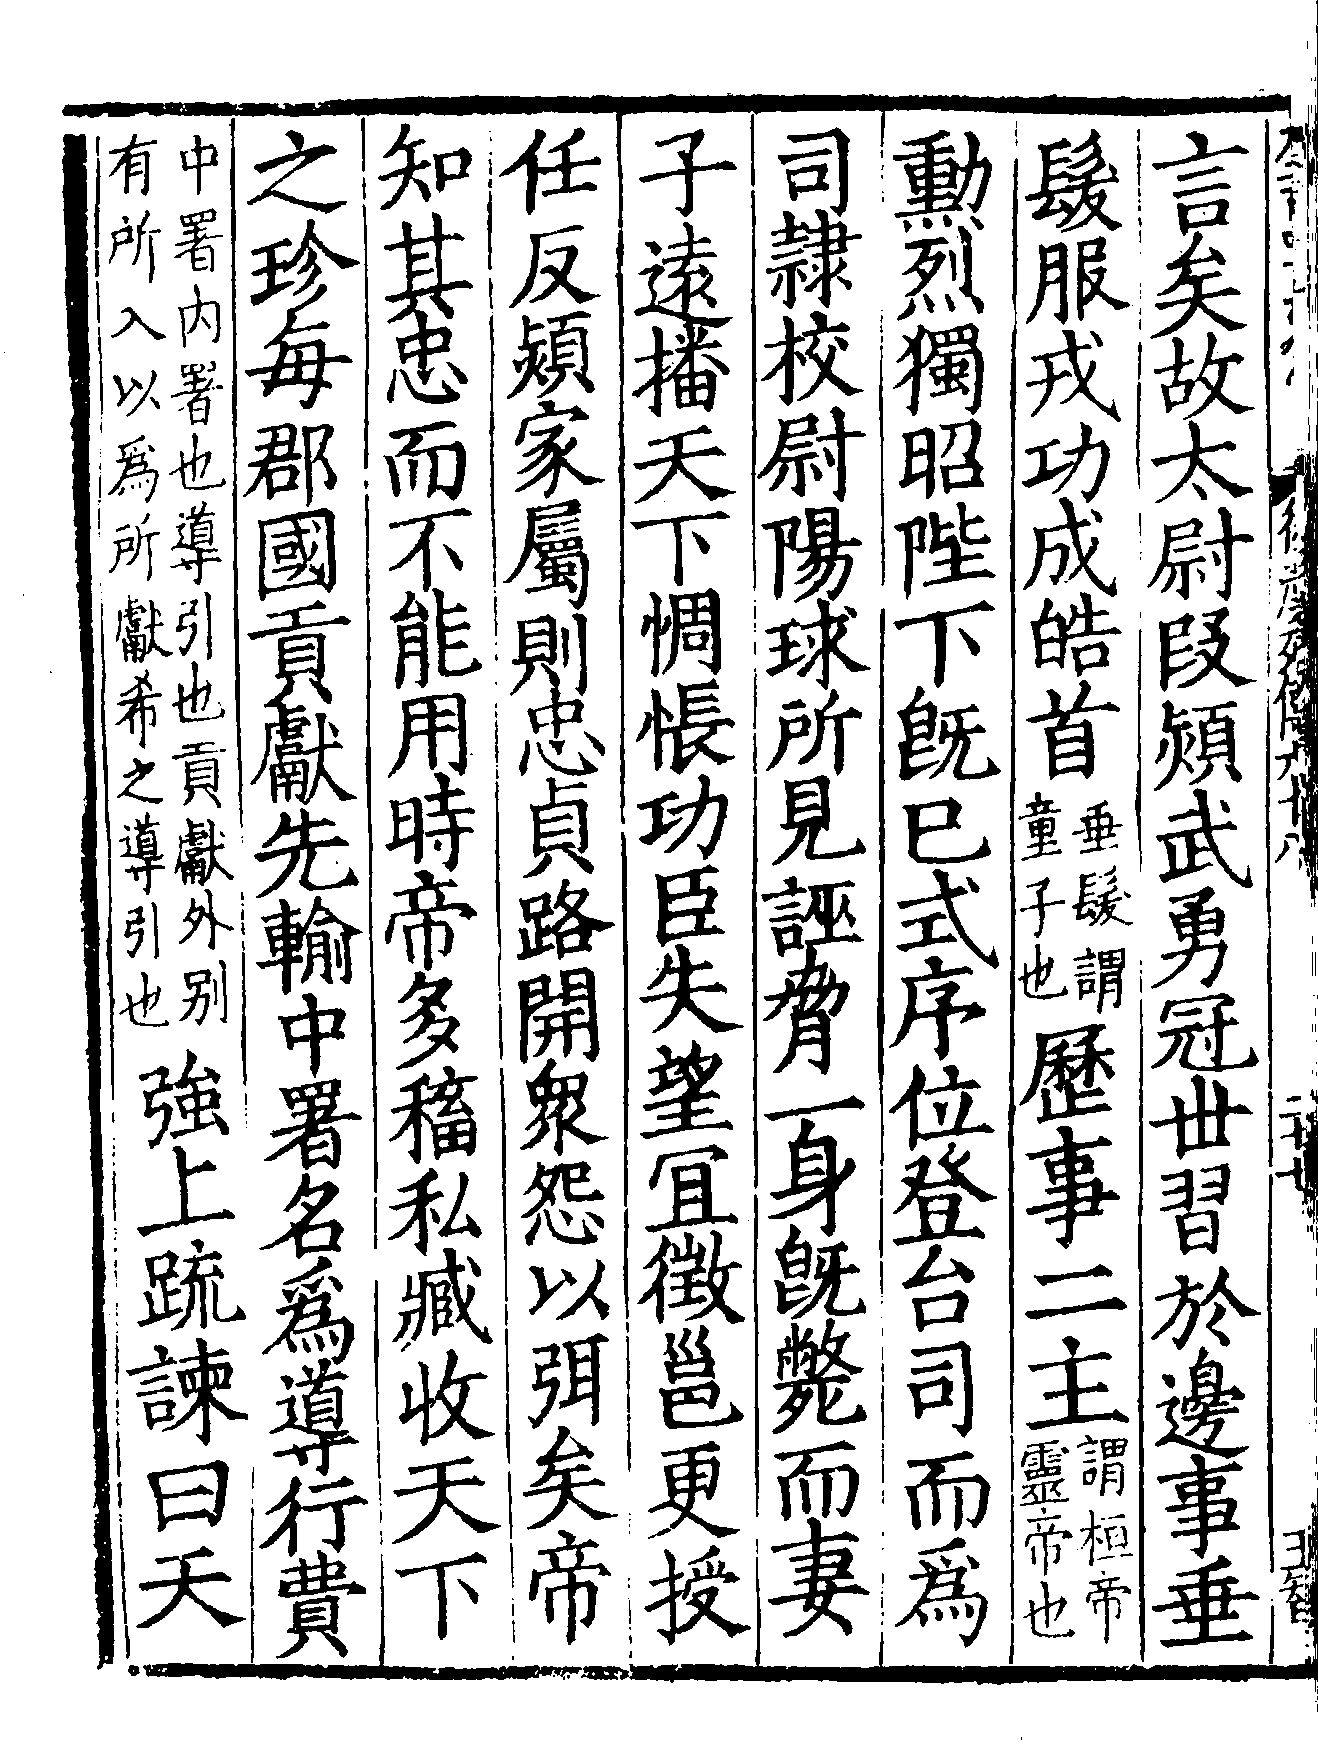 言矣故太尉段熲武勇冠世習於邊事垂
髮服戎功成皓首垂髮謂童子也歷事二主謂桓帝靈帝也
勳烈獨昭陛下旣巳式序位登台司而爲
司隷校尉陽球所見誣脅一身旣斃而妻
子遠播天下惆悵功臣失望冝徵邕更授
任反熲家屬則忠貞路開衆怨以弭矣帝
知其忠而不能用時帝多稸私臧收天下
之珍每郡國貢獻先輸中署名爲導行費
中署内署也導引也貢獻外别有所入以爲所獻希之導引也強上疏諫曰天